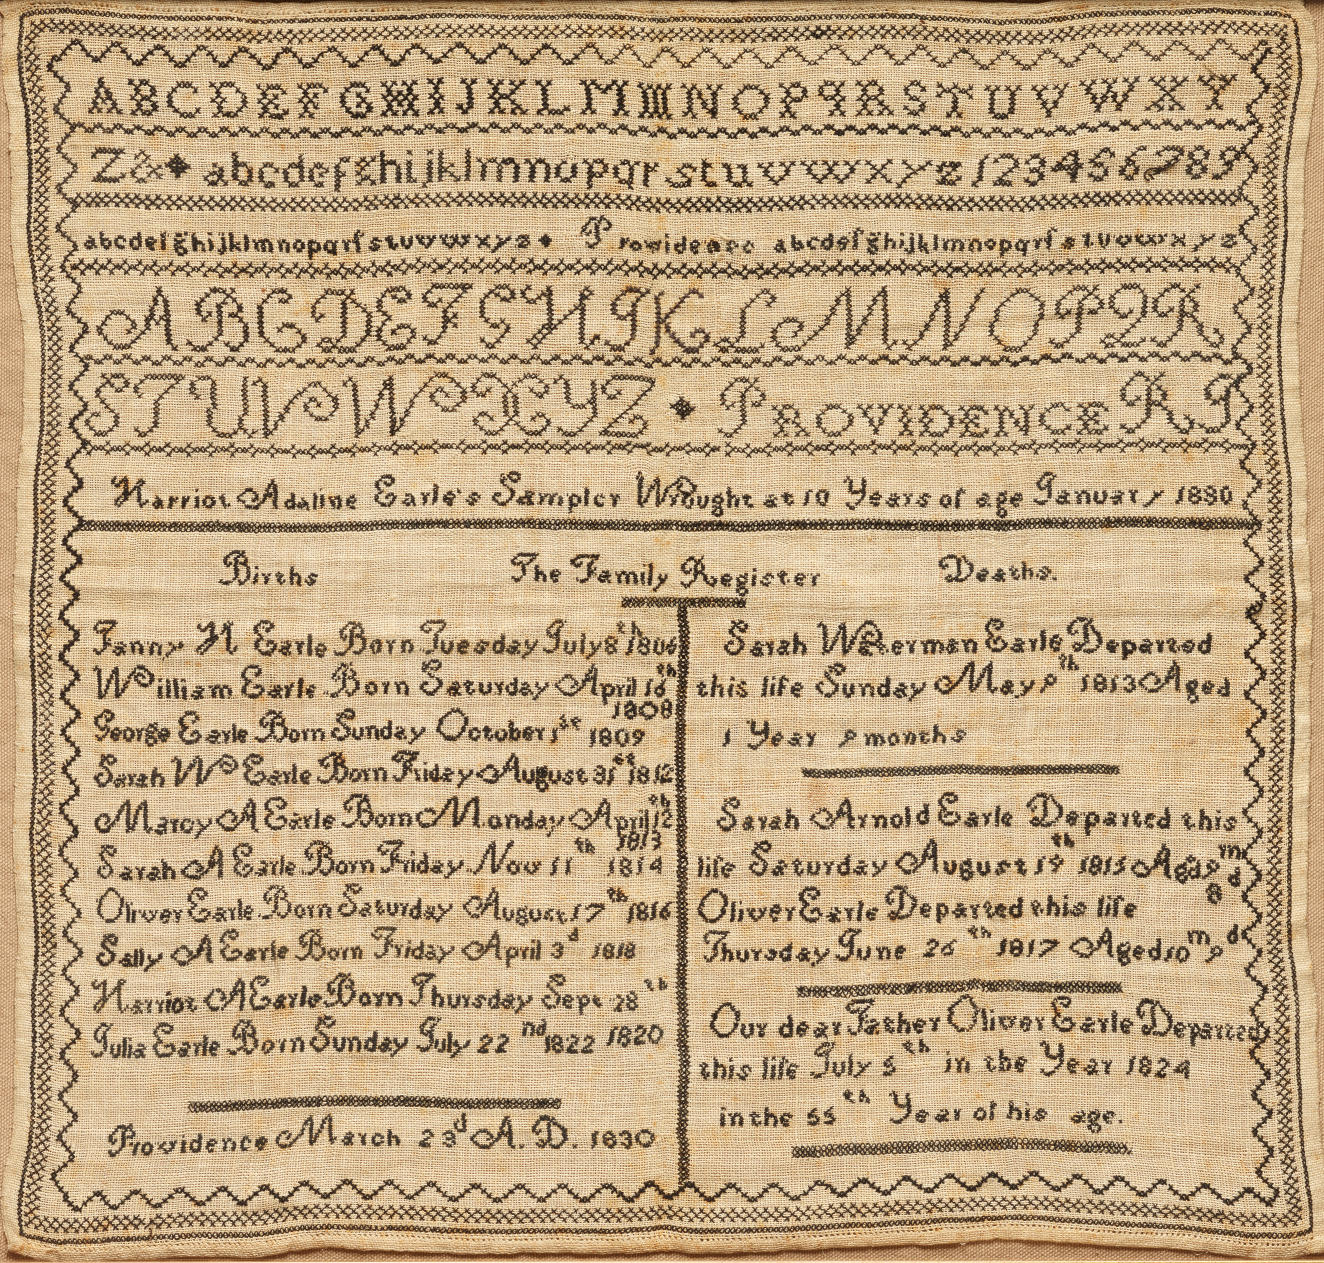 ABCDEFGHIJKLMMNOPQRSTUVWXY
Z& abcdefghijklmnopqrstuvwxyz 123456789
abcdefghijklmnopqrſstuvwxyz Providence abcdefghijklmnopqrſstuvwxyz
ABCDEFGHIKLMNOPQR
STUVWXYZ PROVIDENCE R I
Harriot Adaline Earle's Sampler Wrought at 10 Years of age January 1830
Births The Family Register Deaths.
Fanny H Earle Born Tuesday July 8th 1806
William Earle Born Saturday April 16th
1808
George Earle Born Sunday October 1st 1809
Sarah W Earle Born Friday August 31st 1812
Marcy A Earle Born Monday April 12th
1813
Sarah A Earle Born Friday Nov 11th 1814
Oliver Earle Born Saturday August 17th 1816
Sally A Earle Born Friday April 3d 1818
Harriot A Earle Born Thursday Sept 28th
1820
Julia Earle Born Sunday July 22nd 1822
Providence March 23d A. D. 1830
Sarah Waterman Earle Departed
this life Sunday May 9th 1813 Aged
1 Year 9 months
Sarah Arnold Earle Departed this
life Saturday August 19th 1815 Aged 9m
8d
Oliver Earle Departed this life
Thursday June 26th 1817 Aged 10m 9d
Our dear Father Oliver Earle Departed
this life July 5th in the Year 1824
in the 55th Year of his age.